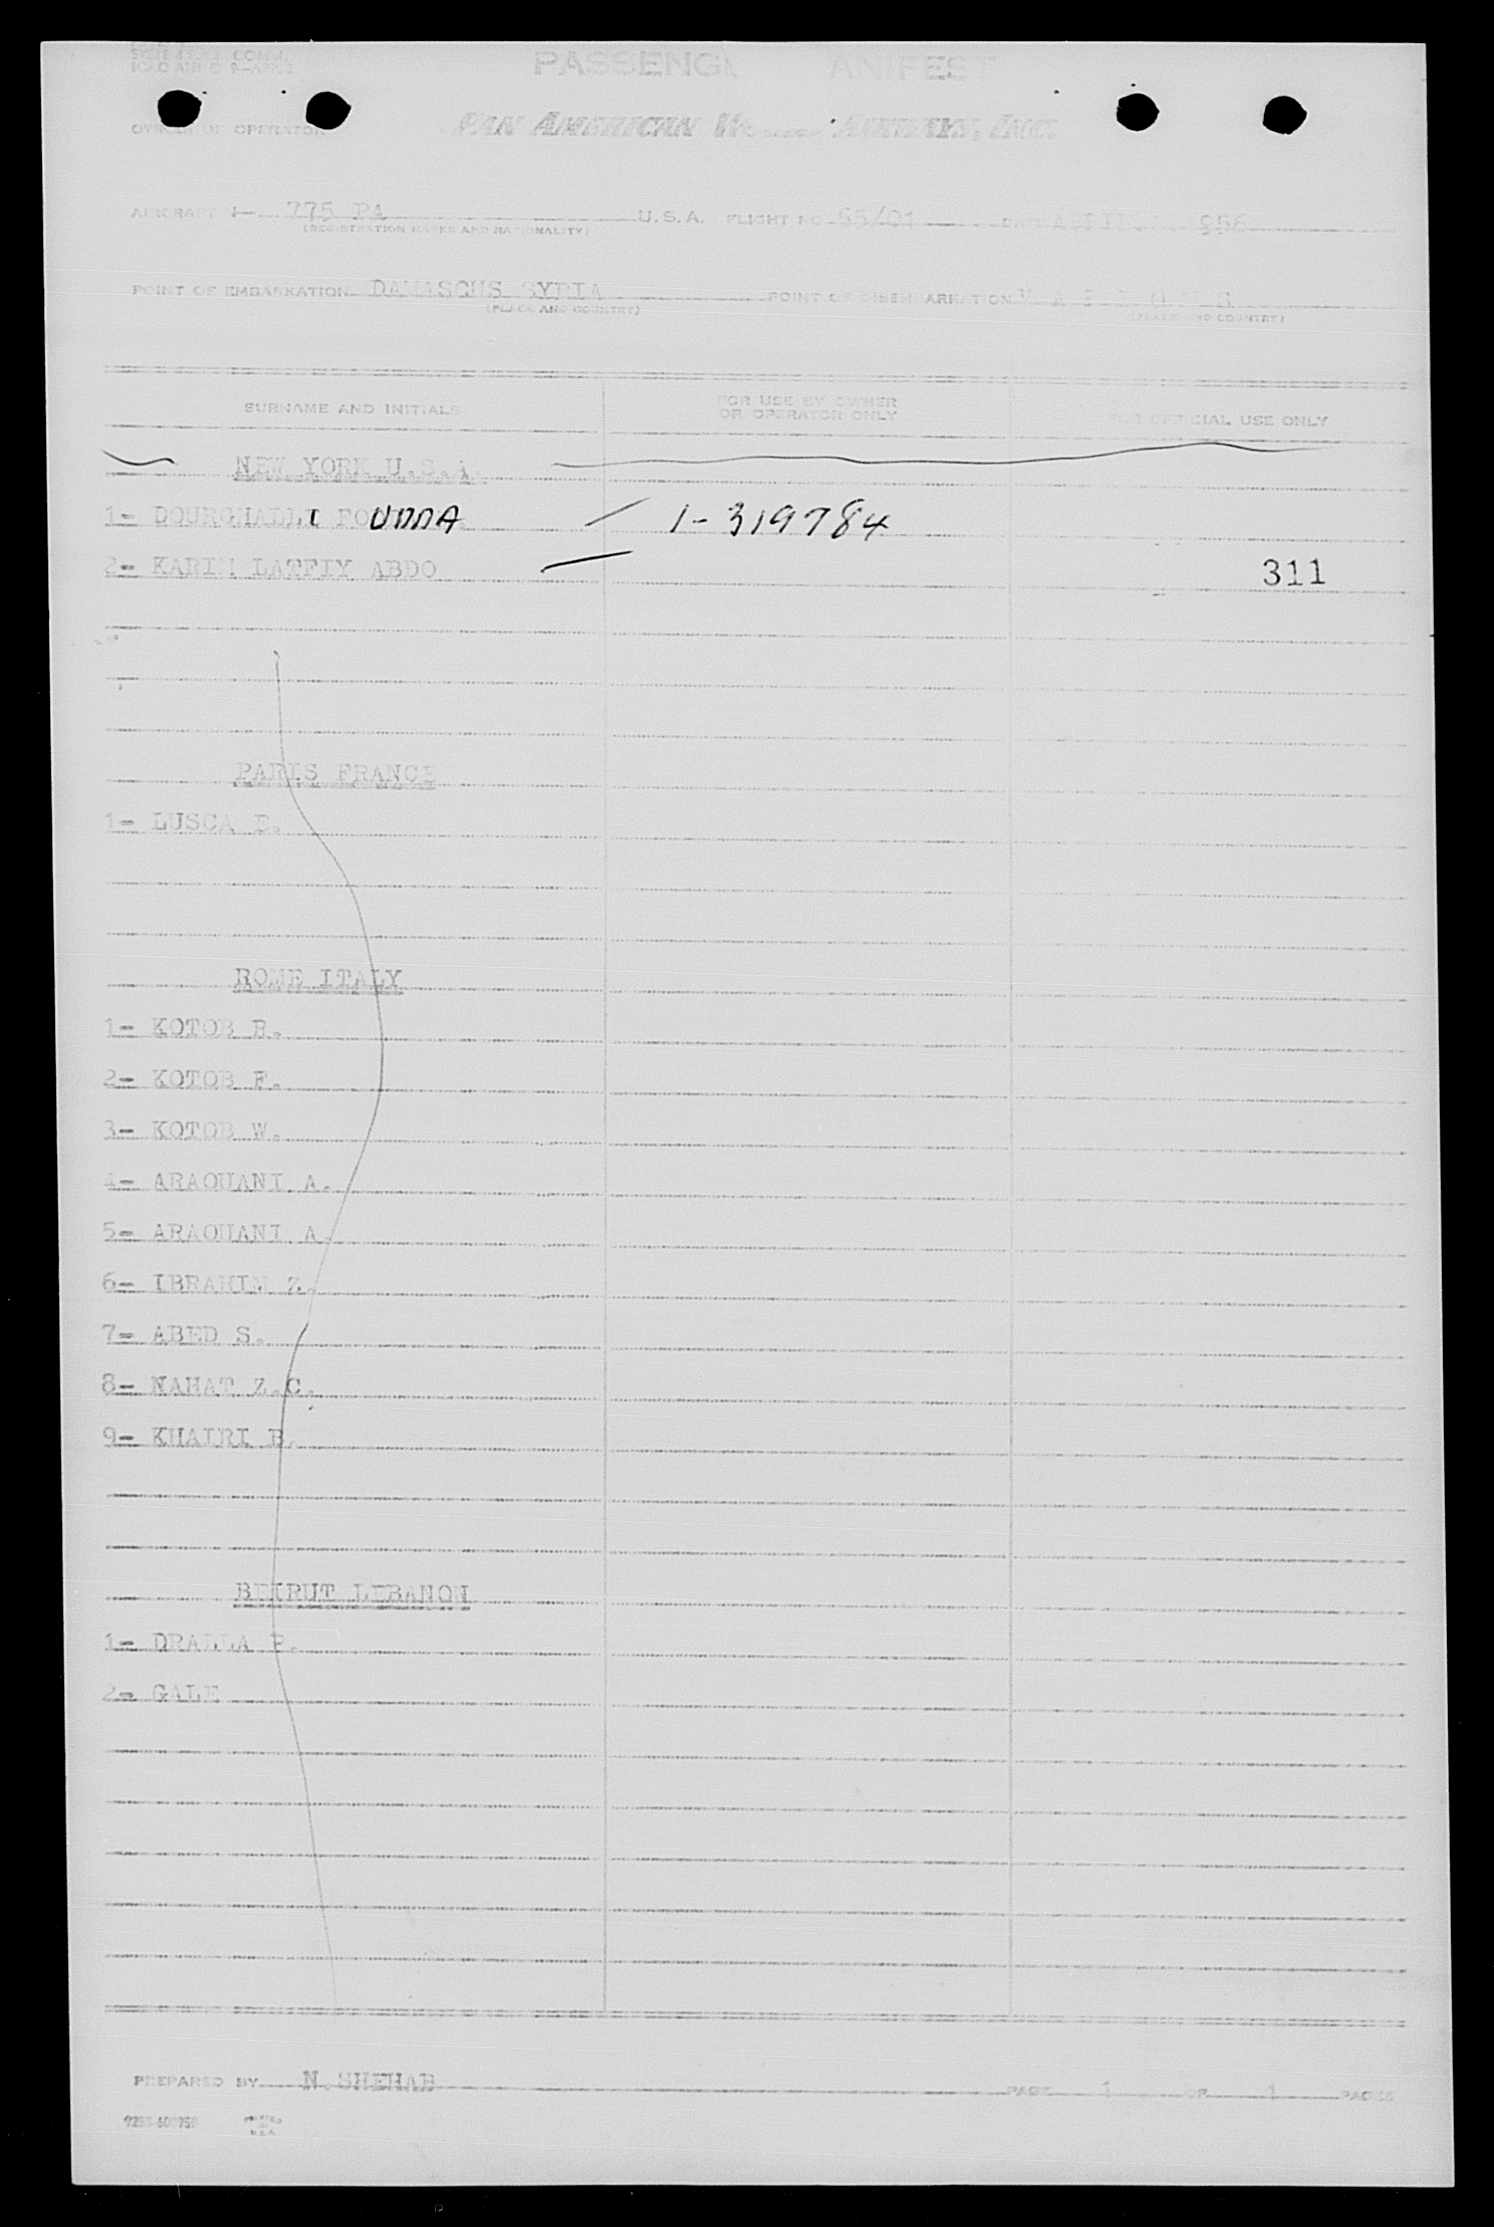 PASSENG ANIFEST
OWNER OR OPERATOR PAN AMERICAN AIRWAYS, INC.
AIRCRAFT 775 PA U.S.A. FLIGHT NO 55/01
(REGISTRATION MARKS AND NATIONALITY)
POINT OF EMBARKATION DAMASCUS SYRIA POINT OF DISEMBARKATION
(PLACE AND COUNTRY) (PLACE AND COUNTRY)
SURNAME AND INITIALS FOR USE BY OWNER OR OPERATOR ONLY FOR OFFICIAL USE ONLY
NEW YORK U.S.A.
1- 1-319784
2- KARIM LATFIY ABDO 311
PARIS FRANCE
1- LUSCA
ROME ITALY
1- KOTOB
2- KOTOB F.
3- KOTOB W.
4- ARAOUANI A.
5- ARAOUANI A.
6- IBRAHIM Z.
7- ABED S.
8- NAHAT Z.C.
9- KHAIRI B.
BEIRUT LEBANON
1- DRALLA
2- GALE
PREPARED BY N.SHEHAB PAGE 1 OF 1 PAGES
PRINTED IN U.S.A.